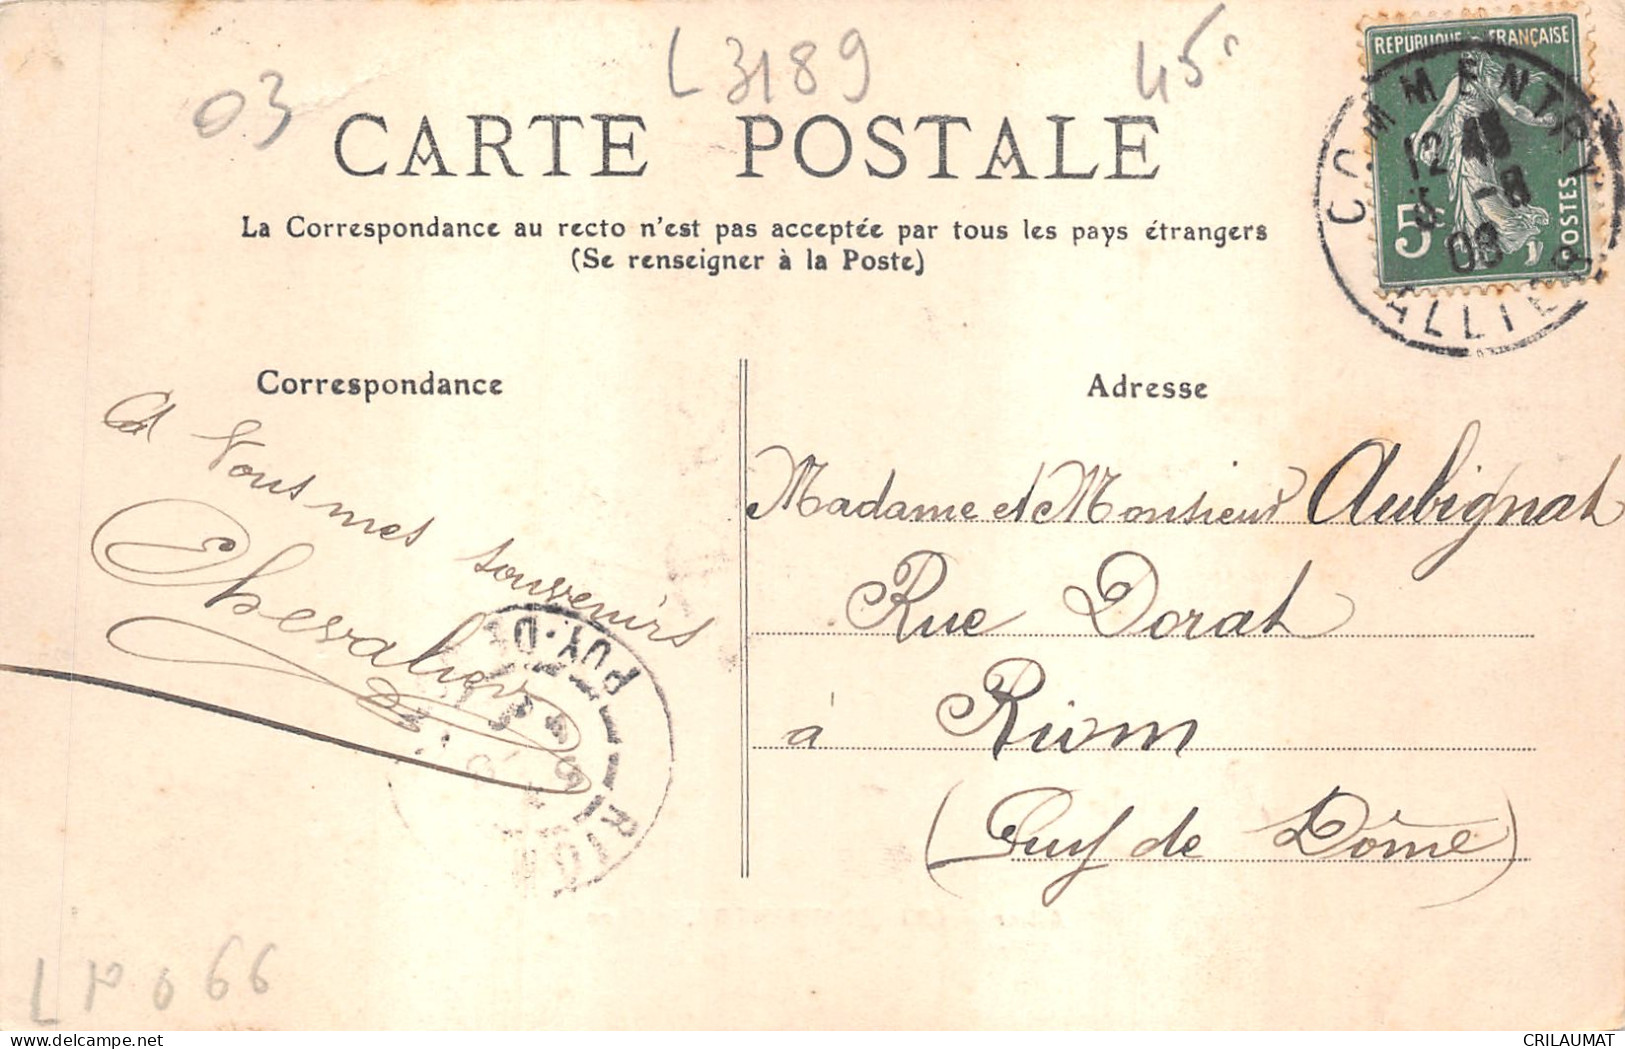 03
L 3189
45c
CARTE POSTALE
La Correspondance au recto n'est pas acceptée par tous les pays étrangers
(Se renseigner à la Poste)
REPUBLIQUE FRANÇAISE
5c
POSTES
COMMENTRY
12 45
5 -8
08
ALLIER
Correspondance
Adresse
A Vous mes souvenirs
Chevalier
Madame et Monsieur Aubignat
Rue Dorat
à Riom
(Puy de Dôme)
RIOM
PUY-DE
CRILAUMAT